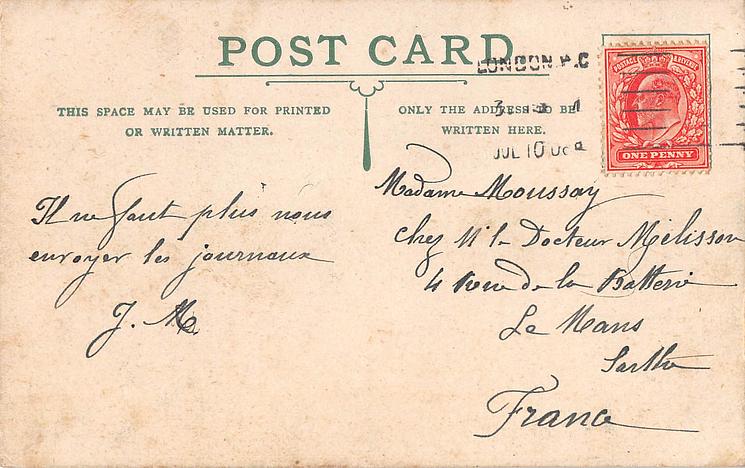 POST CARD
THIS SPACE MAY BE USED FOR PRINTED
OR WRITTEN MATTER.
ONLY THE ADDRESS TO BE
WRITTEN HERE.
LONDON
JUL 10
POSTAGE REVENUE
ONE PENNY
Il ne faut plus nous
envoyer les journaux
J. M.
Madame Moussay
chez Mr le Docteur Mélisson
4 Rue de la Batterie
Le Mans
Sarthe
France